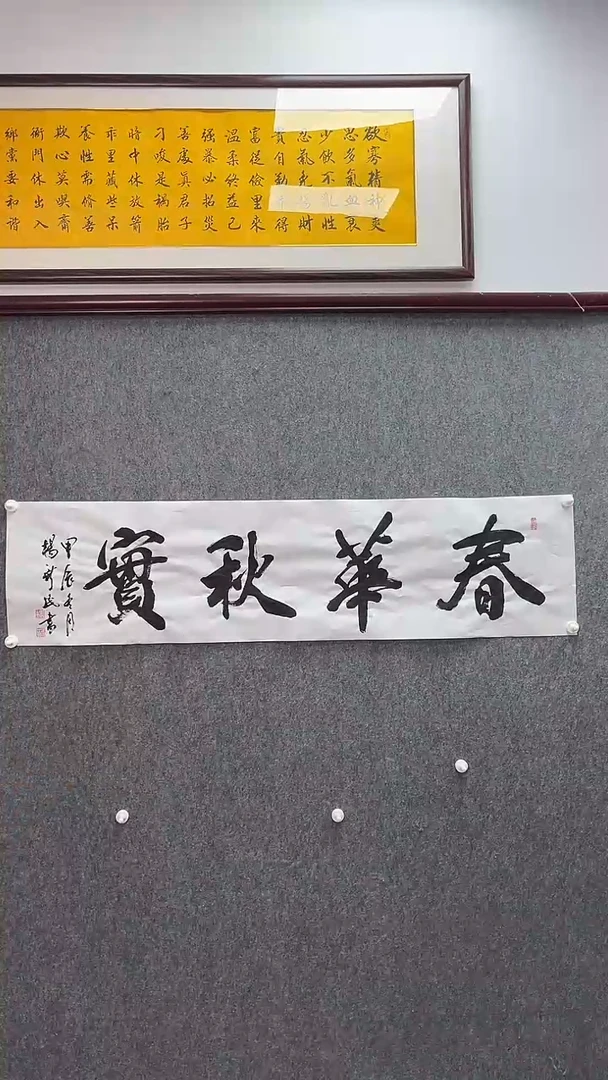 欲寡精神爽
思多氣血衰
少飲不亂性
忍氣免傷財
貴自勤中得
富從儉里來
溫柔終益己
强暴必招災
善處真君子
刁唆是禍胎
暗中休放箭
乖里藏些呆
養性常脩善
欺心莫喫齋
衙門休出入
鄉黨要和諧
春華秋實
甲辰冬月
楊新民書